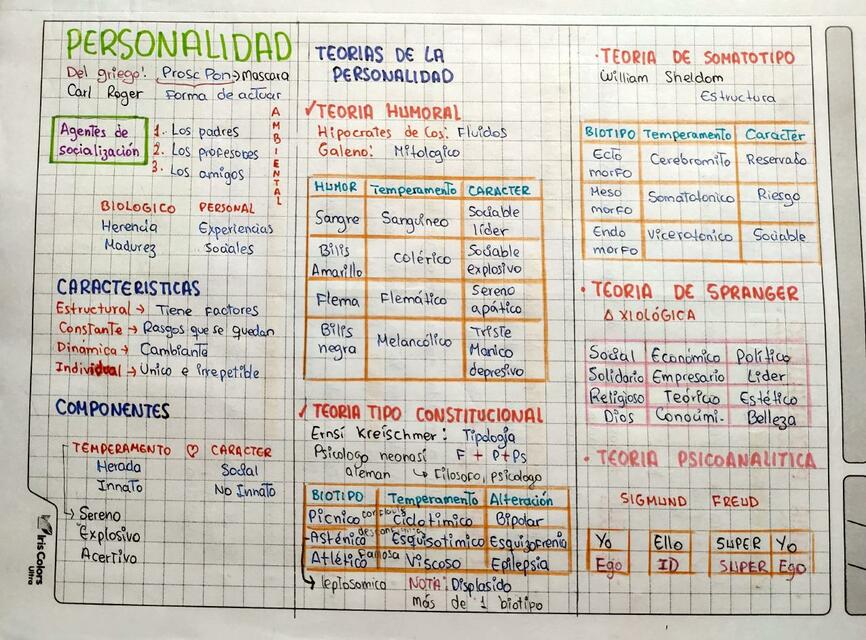 PERSONALIDAD
Del griego: Prosc Pon → mascara
Carl Roger forma de actuar
Agentes de socialización
1. Los padres
2. Los profesores
3. Los amigos
AMBIENTAL
BIOLOGICO PERSONAL
Herencia Experiencias
Madurez Sociales
CARACTERISTICAS
Estructural → Tiene factores
Constante → Rasgos que se quedan
Dinamica → Cambiante
Individual → Unico e irrepetible
COMPONENTES
TEMPERAMENTO ♡ CARACTER
Herada Social
Innato No Innato
→ Sereno
Explosivo
Acertivo
Iris Colors
Ultra
TEORIAS DE LA
PERSONALIDAD
✓TEORIA HUMORAL
Hipocrates de Cos: Fluidos
Galeno: Mitologico
HUMOR Temperamento CARACTER
Sangre Sanguineo Sociable líder
Bilis Amarillo Colérico Sociable explosivo
Flema Flemático Sereno apático
Bilis negra Melancólico Triste Manico depresivo
✓TEORIA TIPO CONSTITUCIONAL
Ernsí Kreischmer: Tipologia
Psicologo neonasi F + P + Ps
aleman ↳ Filosofo, psicologo
BIOTIPO Temperamento Alteración
Picnico Ciclotimico Bipolar
Asténico Esquisotimico Esquizofrenia
Atlético Viscoso Epilepsia
→ leptosomico NOTA: Displasido
más de 1 biotipo
· TEORIA DE SOMATOTIPO
William Sheldom
Estructura
BIOTIPO Temperamento Caracter
Ecto morfo Cerebromito Reservado
Meso morfo Somatotonico Riesgo
Endo morfo Viceratonico Sociable
· TEORIA DE SPRANGER
AXIOLÓGICA
Social Económico Político
Solidario Empresario Lider
Religioso Teórico Estético
Dios Conocimi. Belleza
· TEORIA PSICOANALITICA
SIGMUND FREUD
Yo Ello SUPER Yo
Ego ID SUPER Ego